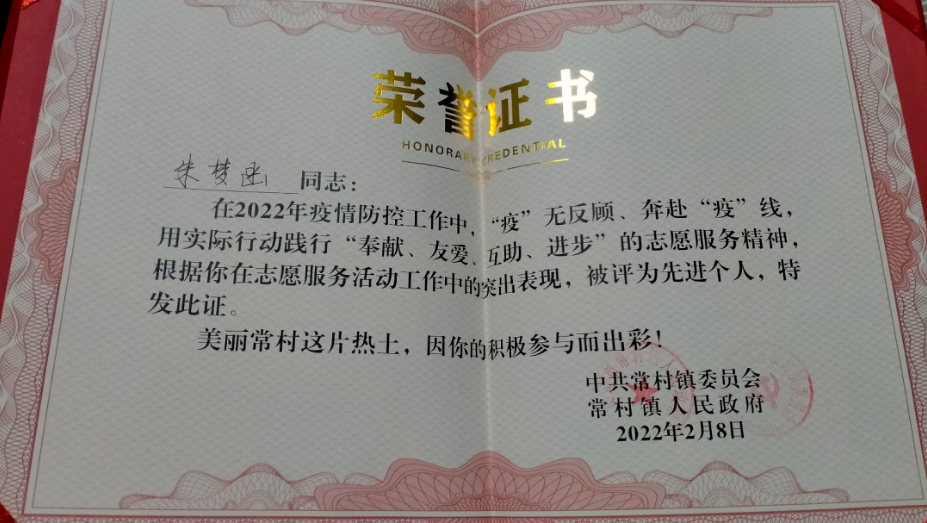 荣誉证书
HONORARY CREDENTIAL
朱梦函 同志：
在2022年疫情防控工作中，“疫”无反顾、奔赴“疫”线，
用实际行动践行“奉献、友爱、互助、进步”的志愿服务精神，
根据你在志愿服务活动工作中的突出表现，被评为先进个人，特
发此证。
美丽常村这片热土，因你的积极参与而出彩！
中共常村镇委员会
常村镇人民政府
2022年2月8日